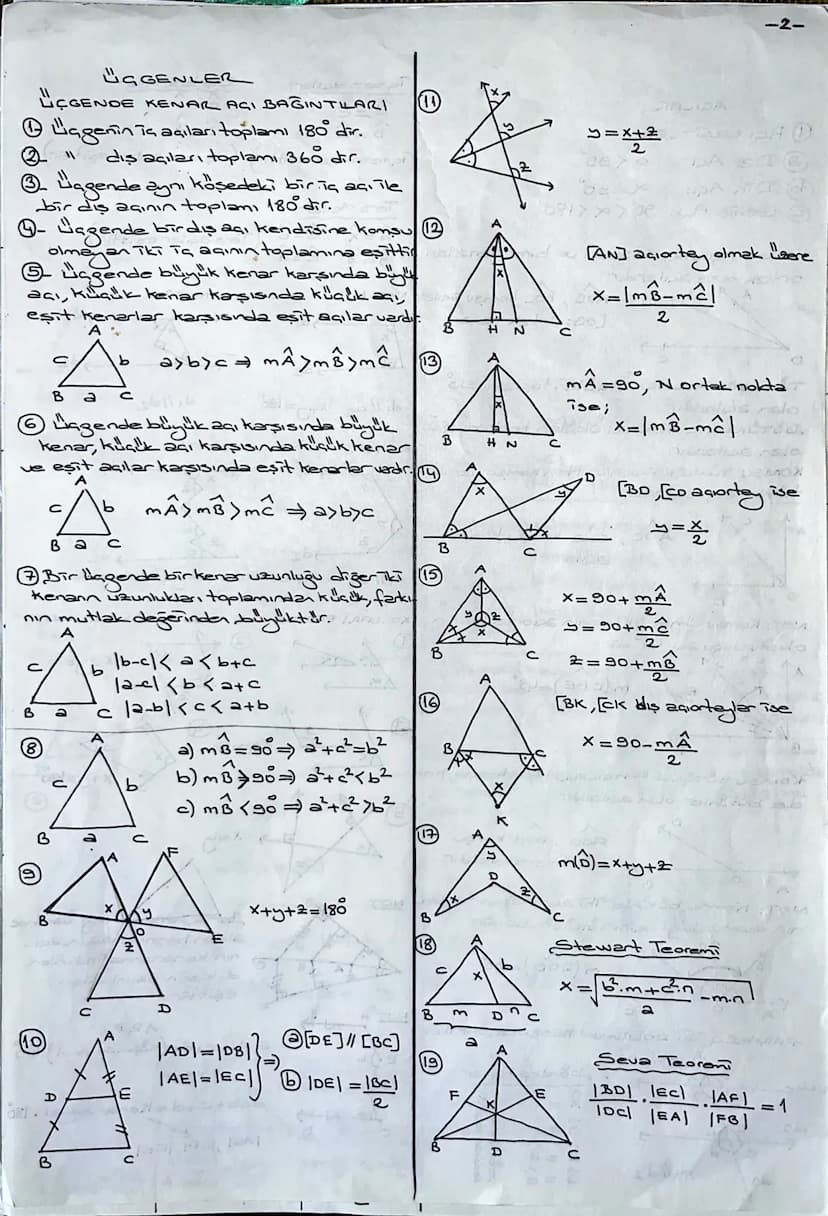 -2-
ÜÇGENLER
ÜÇGENDE KENAR AÇI BAĞINTILARI
1- Üçgenin iç açıları toplamı 180° dir.
2- " dış açıları toplamı 360° dir.
3- Üçgende aynı köşedeki bir iç açı ile
bir dış açının toplamı 180° dir.
4- Üçgende bir dış açı kendisine komşu
olmayan iki iç açının toplamına eşittir
5- Üçgende büyük kenar karşında büyük
açı, küçük kenar karşısında küçük açı,
eşit kenarlar karşısında eşit açılar vardır.
A
c b a>b>c ⇒ mÂ>mB̂>mĈ
B a C
6 Üçgende büyük açı karşısında büyük
kenar, küçük açı karşısında küçük kenar
ve eşit açılar karşısında eşit kenarlar vardır.
A
c b mÂ>mB̂>mĈ ⇒ a>b>c
B a C
7 Bir üçgende bir kenar uzunluğu diğer iki
kenarın uzunlukları toplamından küçük, farkı-
nın mutlak değerinden büyüktür.
A
c b |b-c|< a < b+c
|a-c| < b < a+c
B a C |a-b| < c < a+b
8 A a) mB̂=90° ⇒ a²+c²=b²
c b b) mB̂>90° ⇒ a²+c²<b²
c) mB̂<90° ⇒ a²+c²>b²
B a C
9 A F
B x y x+y+z=180°
O E
z
C D
10 A |AD|=|DB| ⇒ a [DE]//[BC]
D E |AE|=|EC| b |DE|=|BC|/2
B C
11 x
y y=x+z/2
z
12 A
[AN] açıortay olmak üzere
x x=|mB̂-mĈ|/2
B H N C
13 A mÂ=90°, N orta nokta
ise;
x x=|mB̂-mĈ|
B H N C
14 A D [BD, [CD açıortay ise
x y y=x/2
B C x
15 A x=90+mÂ/2
y z y=90+mĈ/2
x z=90+mB̂/2
B C
16 A [BK, [CK dış açıortaylar ise
B C x=90-mÂ/2
x x
K
17 A
y m(D̂)=x+y+z
D
x z
B C
18 A Stewart Teoremi
c x b x=√b².m+c².n/a -m.n
B m D n C
a
19 A Seva Teoremi
F E |BD|/|DC|.|EC|/|EA|.|AF|/|FB|=1
K
B D C